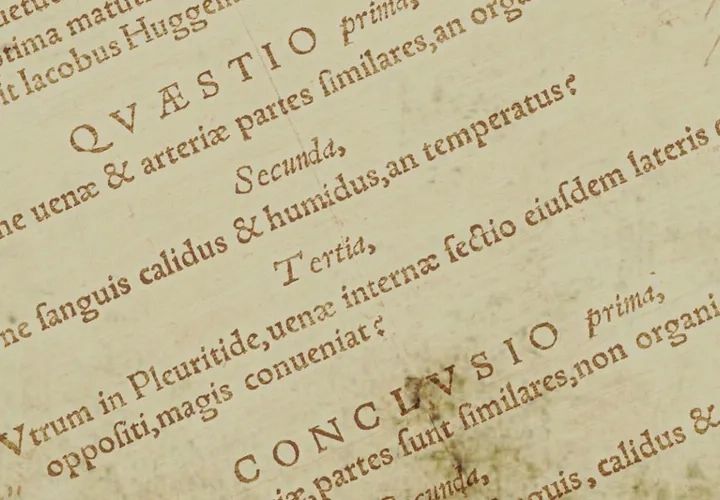 ſit Iacobus Huggen
QVÆSTIO prima,
ne uenæ & arteriæ partes ſimilares,an orga
Secunda,
ne ſanguis calidus & humidus,an temperatus?
Tertia,
Vtrum in Pleuritide,uenæ internæ ſectio eiuſdem lateris
oppoſiti,magis conueniat?
CONCLVSIO prima,
partes ſunt ſimilares,non organi
calidus &